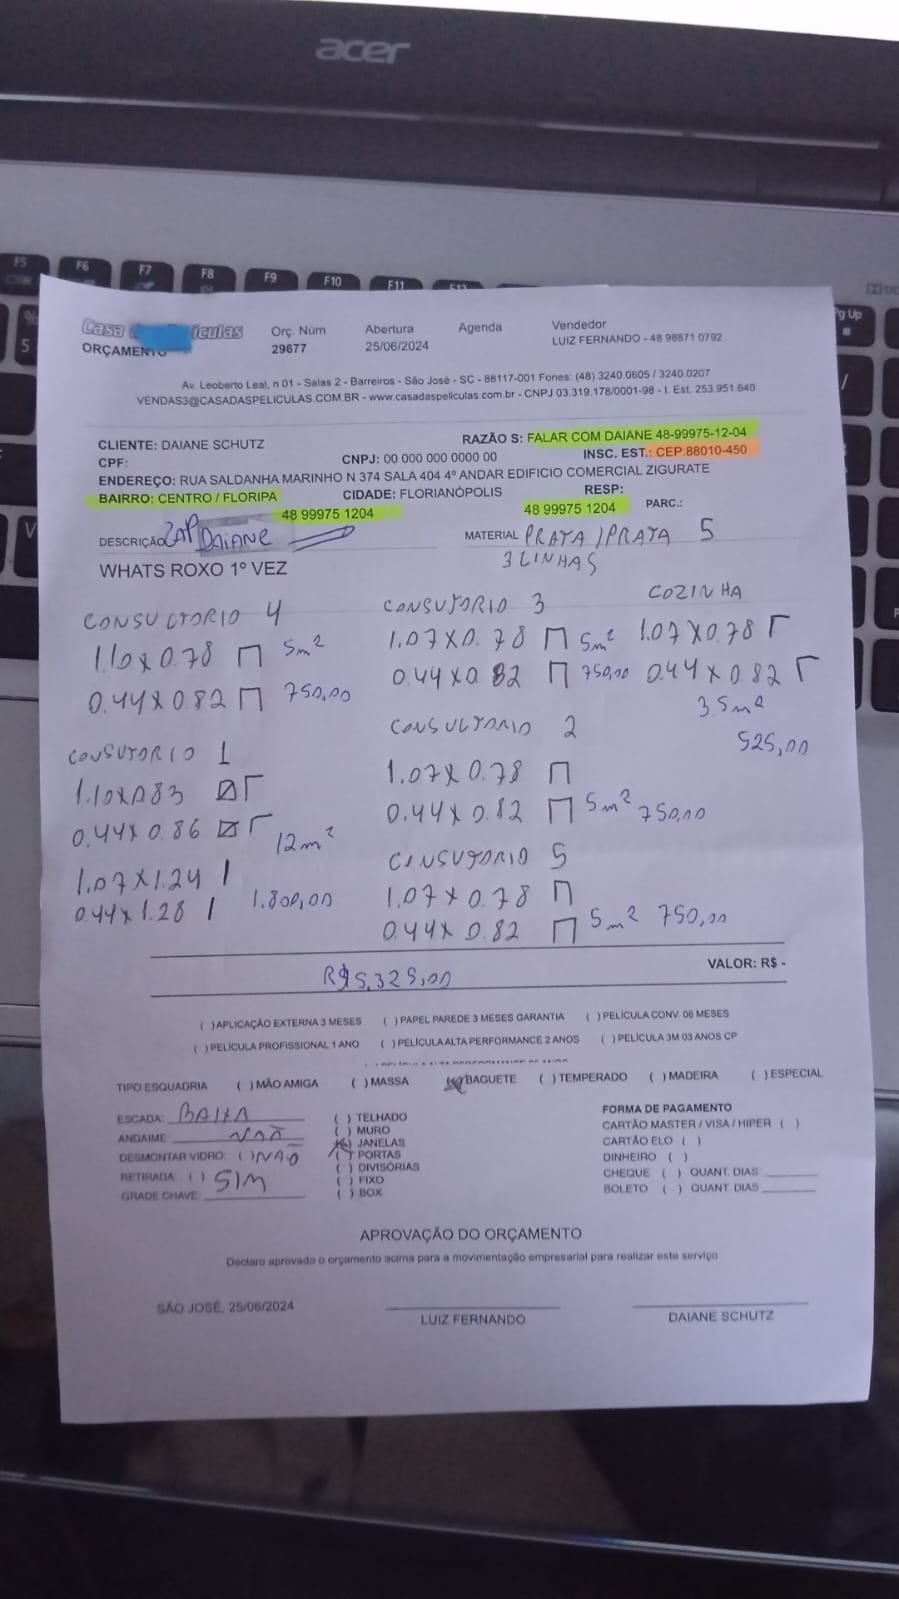 acer
F5 F6 F7 F8 F9 F10 F11 F12
% 5
Pg Up
V
Casa Películas
ORÇAMENTO
Orç. Núm
29677
Abertura
25/06/2024
Agenda
Vendedor
LUIZ FERNANDO - 48 98871 0792
Av. Leoberto Leal, n 01 - Salas 2 - Barreiros - São José - SC - 88117-001 Fones: (48) 3240.0605 / 3240.0207
VENDAS3@CASADASPELICULAS.COM.BR - www.casadaspeliculas.com.br - CNPJ 03.319.178/0001-98 - I. Est. 253.951.640
CLIENTE: DAIANE SCHUTZ
RAZÃO S: FALAR COM DAIANE 48-99975-12-04
CPF:
CNPJ: 00 000 000 0000 00
INSC. EST.: CEP 88010-450
ENDEREÇO: RUA SALDANHA MARINHO N 374 SALA 404 4º ANDAR EDIFICIO COMERCIAL ZIGURATE
BAIRRO: CENTRO / FLORIPA
CIDADE: FLORIANÓPOLIS
RESP:
48 99975 1204
48 99975 1204
PARC.:
DESCRIÇÃO ZAP DAIANE
MATERIAL PRATA / PRATA 5
3 LINHAS
WHATS ROXO 1º VEZ
CONSUCTORIO 4
1.10 x 0.78 5m²
0.44 x 0.82 750,00
CONSUTORIO 3
1.07 x 0.78 5m²
0.44 x 0.82 750,00
COZINHA
1.07 x 0.78
0.44 x 0.82
3.5m²
525,00
CONSULTORIO 2
1.07 x 0.78
0.44 x 0.82 5m² 750,00
CONSUTORIO 1
1.10 x 0.83
0.44 x 0.86 12m²
1.07 x 1.24
0.44 x 1.28 1.800,00
CONSUTORIO 5
1.07 x 0.78
0.44 x 0.82 5m² 750,00
R$ 5.325,00
VALOR: R$ -
( ) APLICAÇÃO EXTERNA 3 MESES ( ) PAPEL PAREDE 3 MESES GARANTIA ( ) PELÍCULA CONV. 06 MESES
( ) PELÍCULA PROFISSIONAL 1 ANO ( ) PELÍCULA ALTA PERFORMANCE 2 ANOS ( ) PELÍCULA 3M 03 ANOS CP
TIPO ESQUADRIA ( ) MÃO AMIGA ( ) MASSA (X) BAGUETE ( ) TEMPERADO ( ) MADEIRA ( ) ESPECIAL
ESCADA: BAIXA
ANDAIME: NÃO
DESMONTAR VIDRO: ( ) NÃO
RETIRADA: ( ) SIM
GRADE CHAVE:
( ) TELHADO
( ) MURO
(X) JANELAS
( ) PORTAS
( ) DIVISÓRIAS
( ) FIXO
( ) BOX
FORMA DE PAGAMENTO
CARTÃO MASTER / VISA / HIPER ( )
CARTÃO ELO ( )
DINHEIRO ( )
CHEQUE ( ) QUANT. DIAS:
BOLETO ( ) QUANT. DIAS
APROVAÇÃO DO ORÇAMENTO
Declaro aprovado o orçamento acima para a movimentação empresarial para realizar este serviço
SÃO JOSÉ, 25/06/2024
LUIZ FERNANDO
DAIANE SCHUTZ